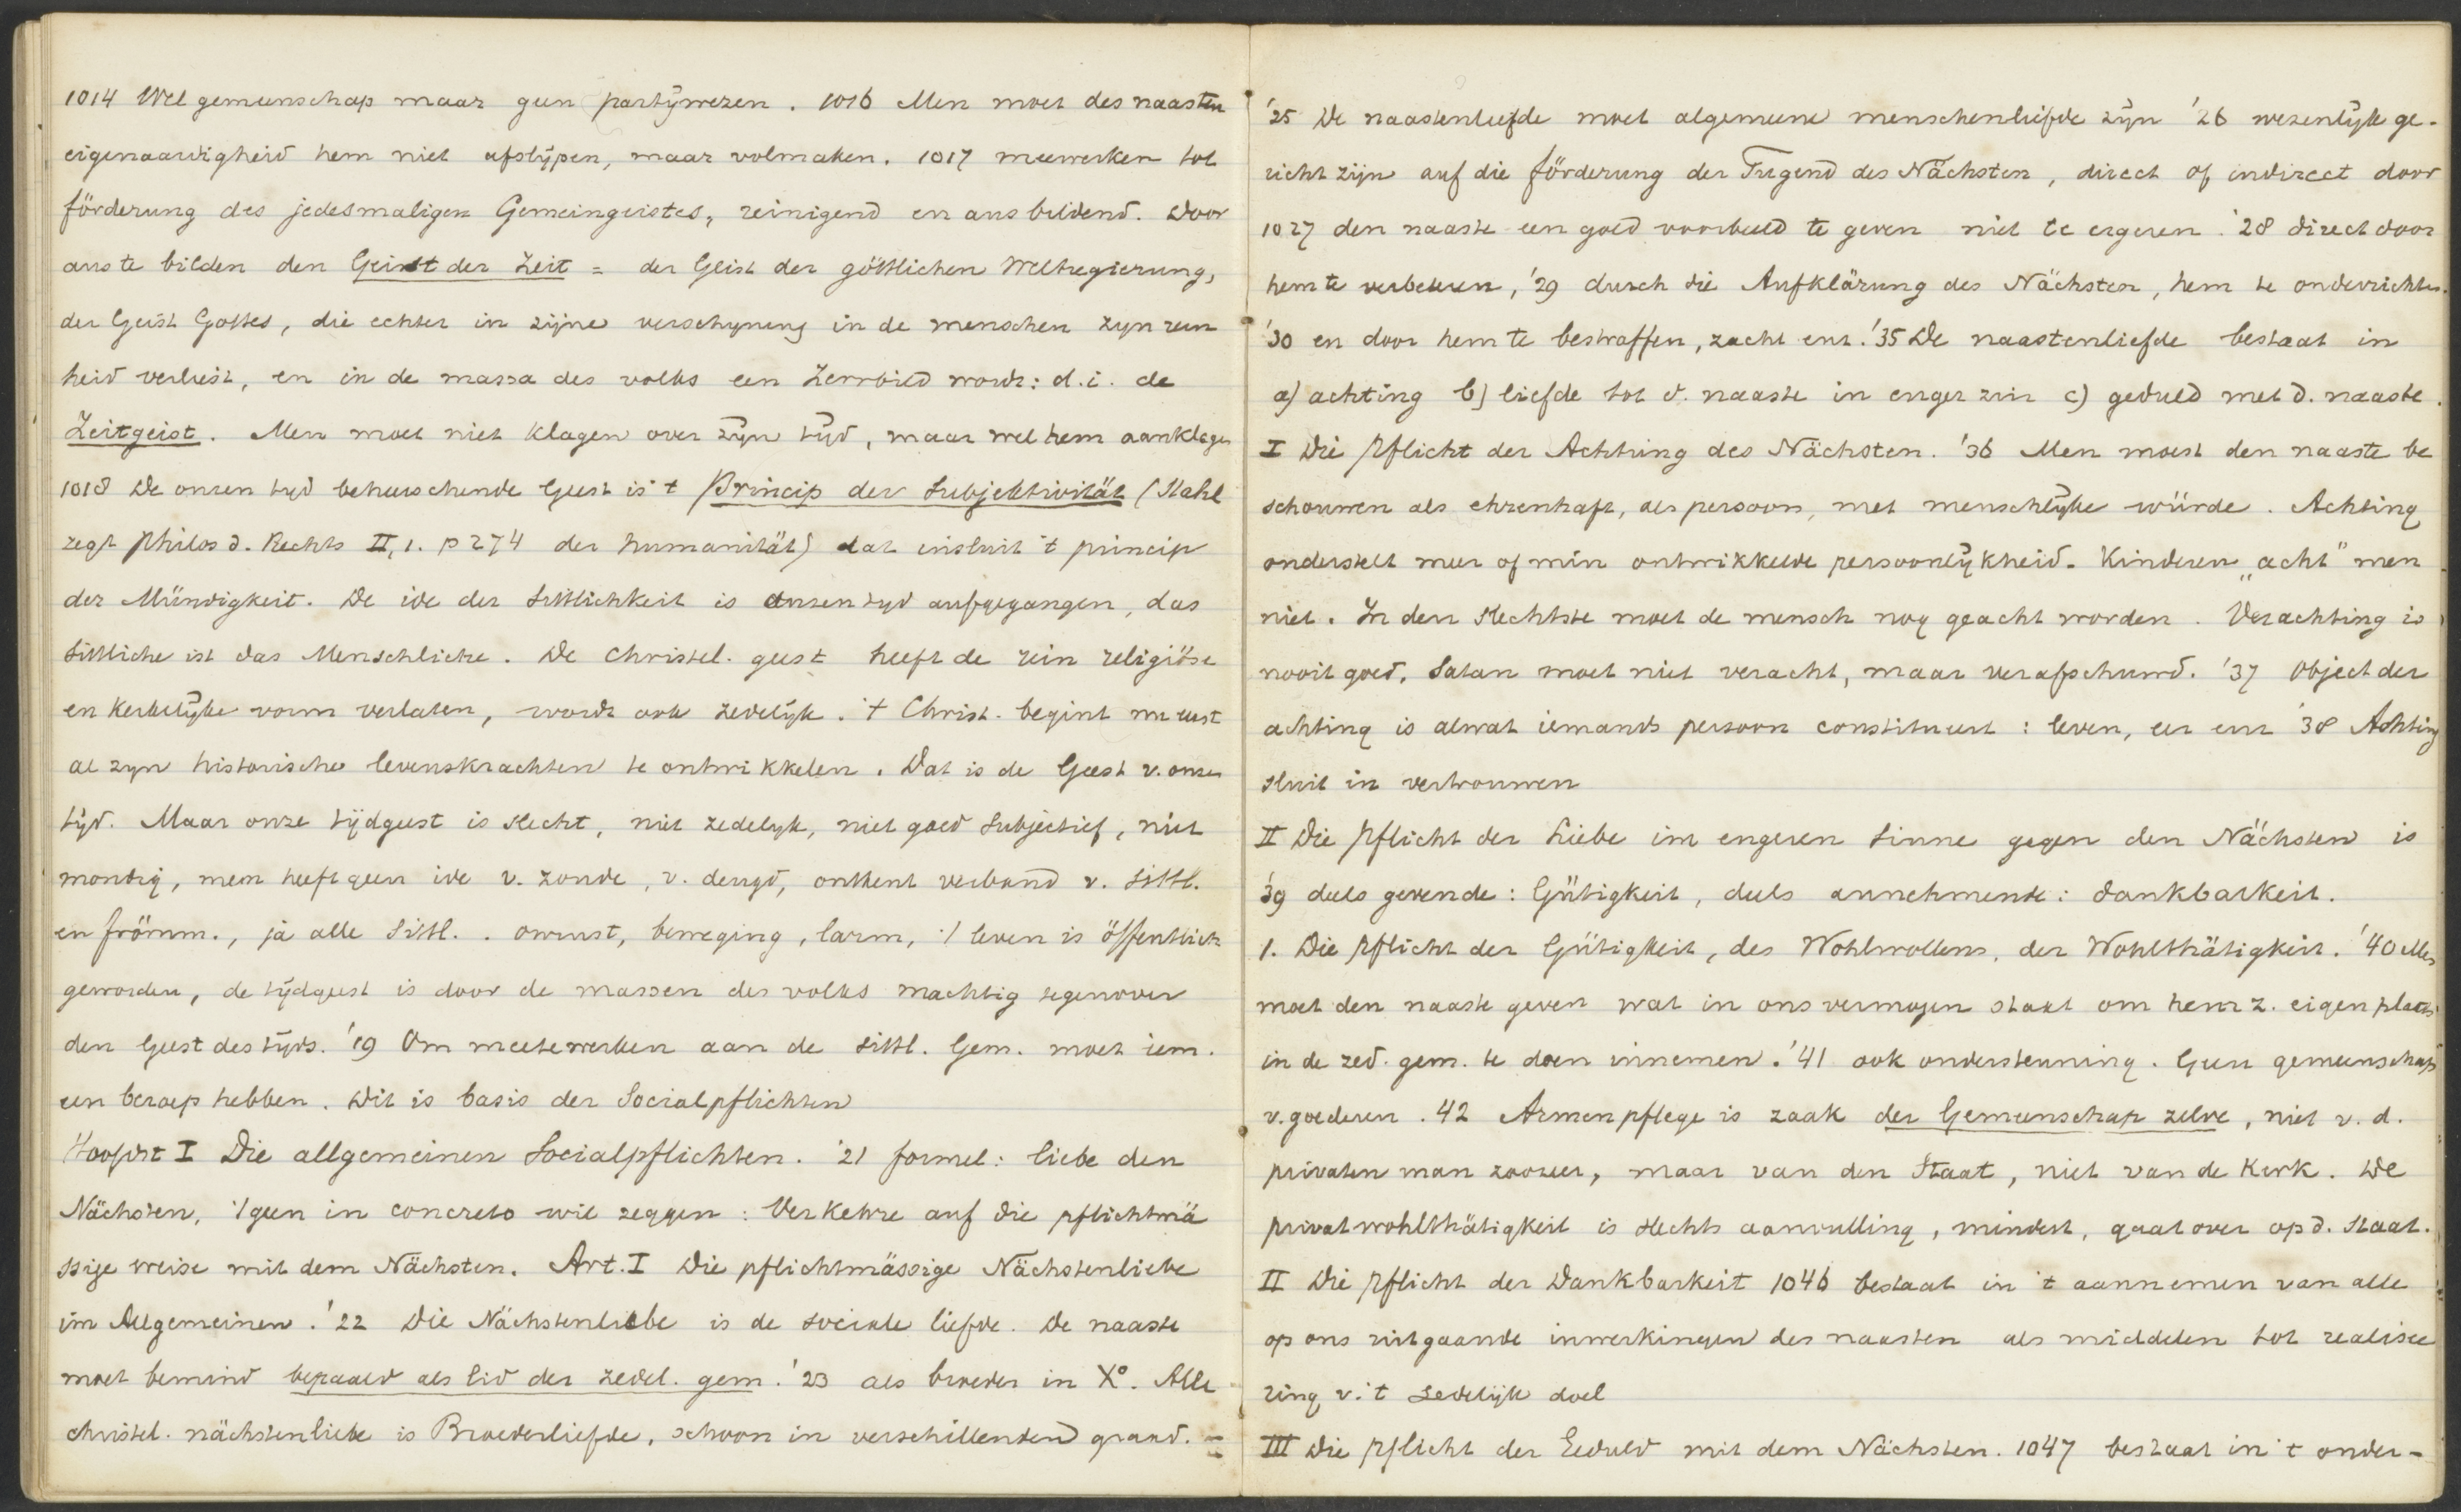 1014 Wel gemeenschap maar geen partÿwezen. 1016 Men moet des naasten
eigenaardigheid hem niet afslÿpen, maar volmaken. 1017 meewerken tot
förderung des jedesmaligen Gemeingeistes, reinigend en ausbildend. Door
aus te bilden den Geist der Zeit = der Geist der göttlichen Weltregierung,
der Geist Gottes, die echter in zijne verschyning in de menschen zyn rein
heid verliest, en in de massa des volks een Zerrbild wordt: d.i. de
Zeitgeist. Men moet niet klagen over zÿn tÿd, maar wel hem aanklagen
1018 De onzen tyd beheerschende Geest is 't Princip der Subjektivität (Stahl
zegt Philos d. Rechts II, 1. p 274 der humanität) dat insluit 't princip
der Mündigkeit. De idee der Sittlichkeit is onzen tyd aufgegangen, das
Sittliche ist das Menschliche. De Christel. geest heeft de rein religiöse
en kerkelÿke vorm verlaten, wordt ook zedelÿk. 't Christ. begint nu eerst
al zyn historische levenskrachten te ontwikkelen. Dat is de Geest v. onzen
tÿd. Maar onze tÿdgeest is slecht, niet zedelyk, niet goed subjectief, niet
mondig, men heeft geen idee v. zonde, v. deugd, ontkent verband v. Sittl.
en frömm., ja alle Sittl. . onrust, beweging, larm, 't leven is öffentlich
geworden, de tÿdgeest is door de massen des volks machtig tegenover
den Geest des tÿds. '19 Om meetewerken aan de sittl. Gem. moet iem.
een beroep hebben. Dit is basis der Socialpflichten
Hoofdst I Die allgemeinen Socialpflichten. '21 formel: liebe den
Nächsten, 'tgeen in concreto wil zeggen: Verkehre auf die pflichtmä
ssige weise mit dem Nächsten. Art. I Die pflichtmässige Nächstenliebe
im Allgemeinen. '22 Die Nächstenliebe is de sociale liefde. De naaste
moet bemind bepaald als lid der zedel. gem. '23 als broeder in Xº. Alle
christel. nächstenliebe is Broederliefde, schoon in verschillenden graad. =
'25 De naastenliefde moet algemeene menschenliefde zÿn '26 wezenlÿk ge-
richt zijn auf die förderung der Tugend des Nächsten, direct of indirect door
1027 den naaste een goed voorbeeld te geven niet te ergeren. '28 direct door
hem te verbeteren, '29 durch die Aufklärung des Nächsten, hem te onderrichten.
'30 en door hem te bestraffen, zacht enz. '35 De naastenliefde bestaat in
a) achting b) liefde tot d. naaste in enger zin c) geduld met d. naaste.
I Die Pflicht der Achtung des Nächsten. '36 Men moet den naaste be
schouwen als ehrenhaft, als persoon, met menschlÿke würde. Achting
onderstelt meer of min ontwikkelde persoonlÿkheid. Kinderen „acht" men
niet. In den slechtste moet de mensch nog geacht worden. Verachting is
nooit goed. Satan moet niet veracht, maar verafschuwd. '37 Object der
achting is alwat iemands persoon constitueert: leven, eer enz '38 Achting
sluit in vertrouwen
II Die Pflicht der Liebe im engeren Sinne gegen den Nächsten is
'39 deels gevende: Gütigkeit, deels annehmende: dankbarkeit.
1. Die Pflicht der Gütigkeit, des Wohlwollens, der Wohlthätigkeit. '40 Men
moet den naaste geven wat in ons vermogen staat om hem z. eigen plaats
in de zed. gem. te doen innemen. '41 ook ondersteuning. Geen gemeenschap
v. goederen. 42 Armenpflege is zaak der Gemeenschap zelve, niet v. d.
privaten man zoozeer, maar van den Staat, niet van de Kerk. De
privatwohlthätigkeit is slechts aanvulling, mindert, gaat over op d. Staat.
II Die Pflicht der Dankbarkeit 1046 bestaat in 't aannemen van alle
op ons uitgaande inwerkingen des naasten als middelen tot realisee
ring v. 't zedelijk doel
III Die Pflicht der Geduld mit dem Nächsten. 1047 bestaat in 't onder-